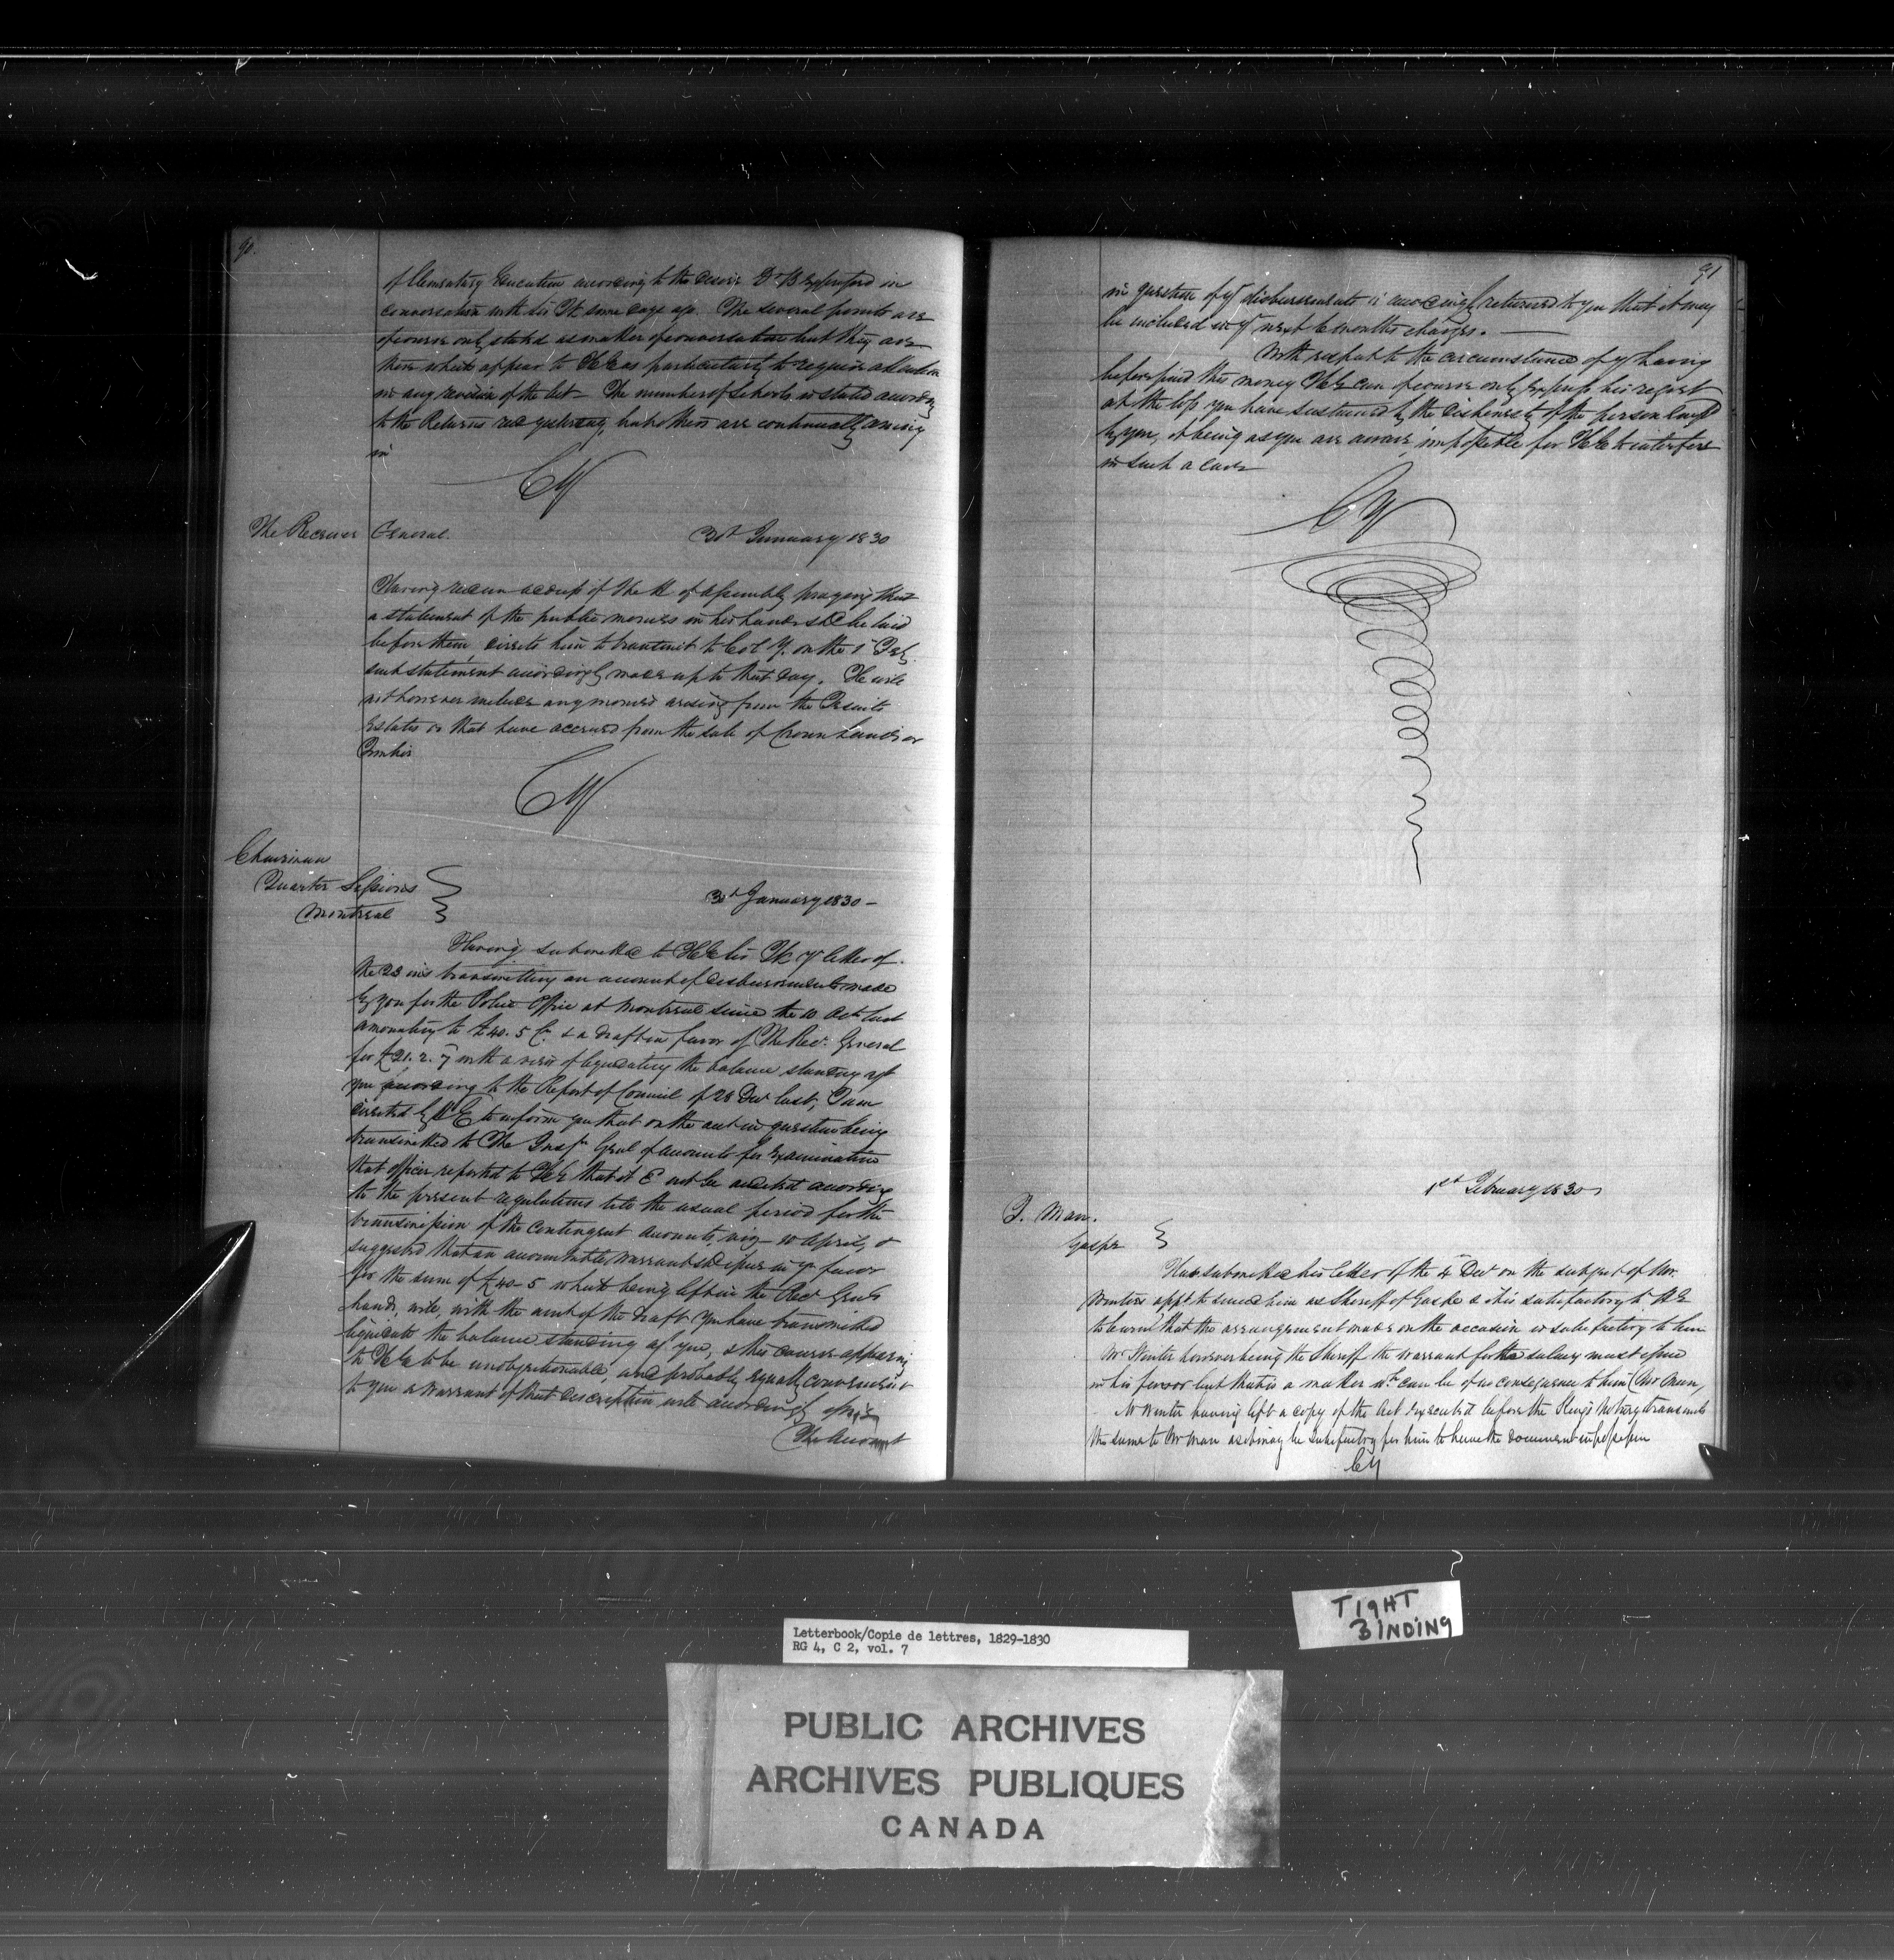 90.
of Elementary Education according to the desire Dr B expressed in
conversation with his Ex some days ago. The several points are
of course only stated as matter of conversation but they are
those which appear to HE as particularly to require attention
in any revision of the Act - The number of schools is stated according
to the Returns recd yesterday, but others are continually coming
in
CY
The Receiver General.
30th January 1830
Having recd an address of the H of Assembly praying that
a statement of the public monies in his hands shd be laid
before them, directs him to transmit to Col Y. on the 1st Feby.
such statement accordingly made up to that day. He will
not however include any monies arising from the Jesuits
Estates or that have accrued from the sale of Crown Lands or
Timber
CY
Chairman
Quarter Sessions
Montreal
30th January 1830 -
Having submitted to HE his Ex yr letter of
the 23 ins transmitting an account of disbursements made
by you for the Police Office at Montreal since the 10 Octr last
amounting to £40. 5 Cy. & a draft in favor of The Recr General
for £21. 2. 7 with a view of liquidating the balance standing agt
you according to the Report of Council of 28 Decr last, I am
directed by HE to inform you that on the acct in question being
transmitted to The Inspr Genl of accounts for Examination
that officer reported to HE that it Cd not be audited according
to the present regulations till the usual period for the
transmission of the Contingent Accounts, viz - 10 April, &
suggested that an accountable Warrant shd issue in yr favor
for the sum of £40-5 which being left in the Recr Genls
hands, will, with the amt of the draft you have transmitted
liquidate the balance standing agt you, & this course appearing
to HE to be unobjectionable, and probably equally convenient
to you a Warrant of that description will accordingly issue
The Account
91
in question of yr disbursements is accordingly returned to you that it may
be included in yr next 6 months charges. -
With respect to the circumstance of yr having
before paid this money HE can of course only express his regret
at the loss you have sustained by the dishonesty of the person employd
by you, it being as you are aware, impossible for HE to interfere
in such a case
CY
1st February 1830
J. Man.
Gaspe
Has submitted his letter of the 4 Decr on the subject of Mr.
Winters appt to succeed him as Sheriff of Gaspe & it is satisfactory to HE
to learn that the arrangement made on the occasion is satisfactory to him
Mr Winter however being the Sheriff the warrant for the salary must issue
in his favor but that is a matter wh can be of no consequence to him (Mr Man,
Mr Winter having left a copy of the Act executed before the Kings Notary transmits
the same to Mr Man as it may be satisfactory for him to have the document in possession
CY
TIGHT
BINDING
Letterbook/Copie de lettres, 1829-1830
RG 4, C 2, vol. 7
PUBLIC ARCHIVES
ARCHIVES PUBLIQUES
CANADA